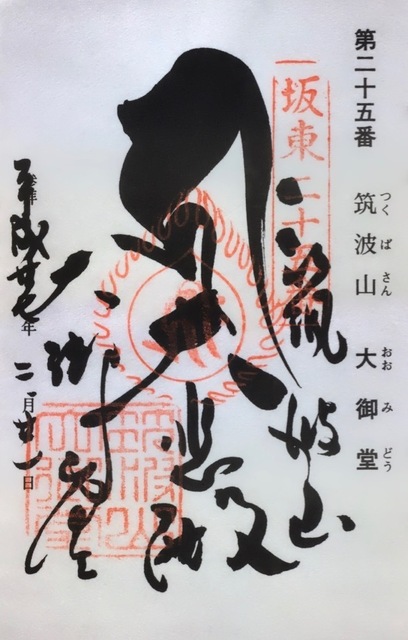 第二十五番 筑波山 大御堂
つくばさん おおみどう
坂東二十五番
筑波山
大悲殿
大御堂
参拝
平成廿七年二月廿一日